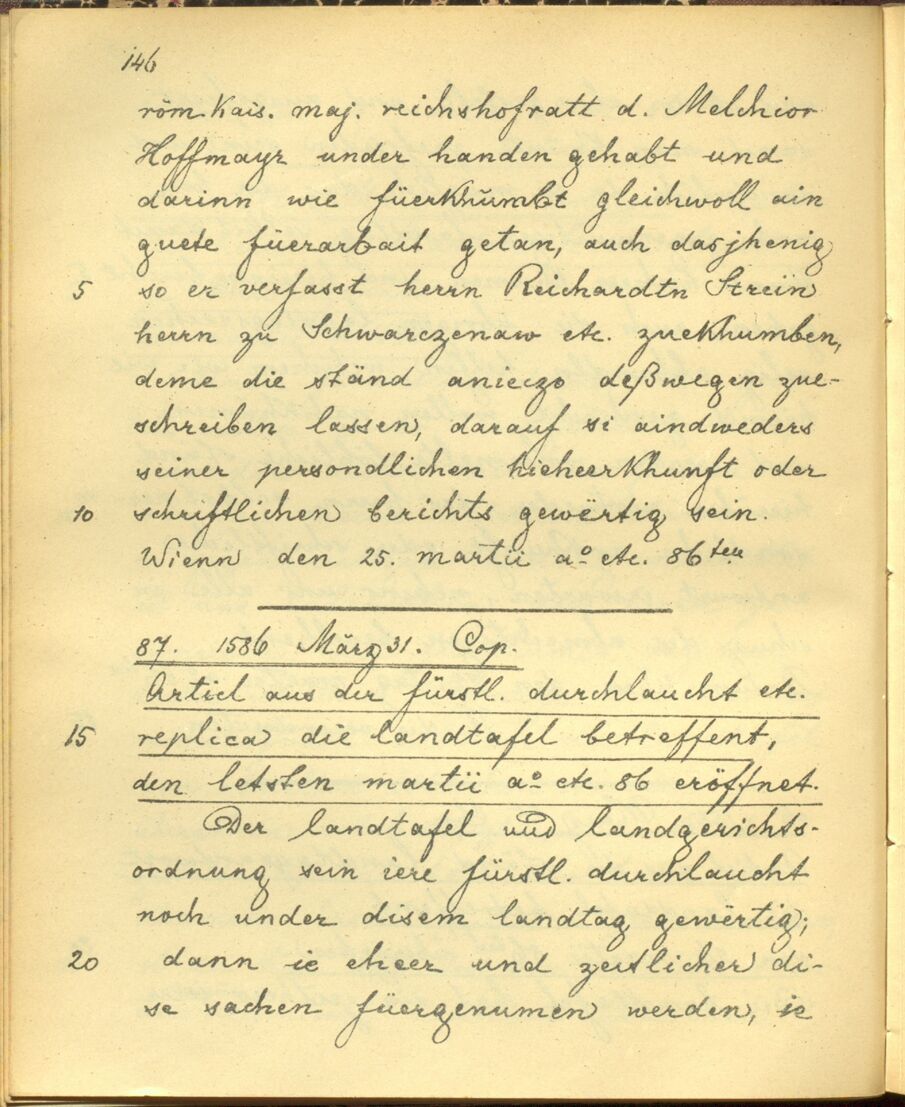 146
röm. Kais. maj. reichshofratt d. Melchior
Hoffmayr under handen gehabt und
darinn wie füerkhŭmbt gleichwoll ain
guete füerarbait getan, auch dasjhenig
5 so er verfasst herrn Reichardtn Strein
herrn zu Schwarczenaw etc. zuekhumben,
deme die ständ anieczo deßwegen zue-
schreiben lassen, darauf si aindweders
seiner persondlichen hieheerkhunft oder
10 schriftlichen berichts gewërtig sein.
Wienn den 25. martii ao. etc. 86ten
87. 1586 März 31. Cop.
Articl aus der fürstl. durchlaucht etc.
15 replica die landtafel betreffent,
den letsten martii ao. etc. 86 eröffnet.
Der landtafel und landgerichts-
ordnung sein iere fürstl. durchlaucht
noch under disem landtag gewërtig;
20 dann ie eheer und zeitlicher di-
se sachen füergenumen werden, ie